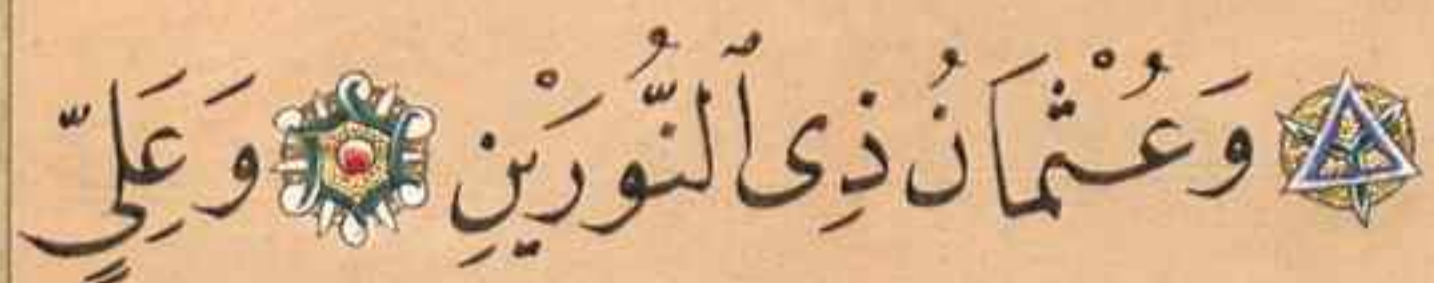 وَعُثْمَانُ ذِى ٱلنُّورَيْنِ وَعَلِيٍّ